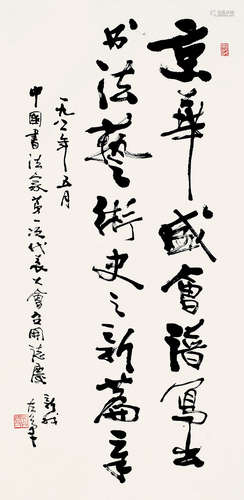 京華盛會譜寫出
书法藝術史之新篇章
一九八一年五月
中國書法家第一次代表大會召開誌慶
新我
左笔